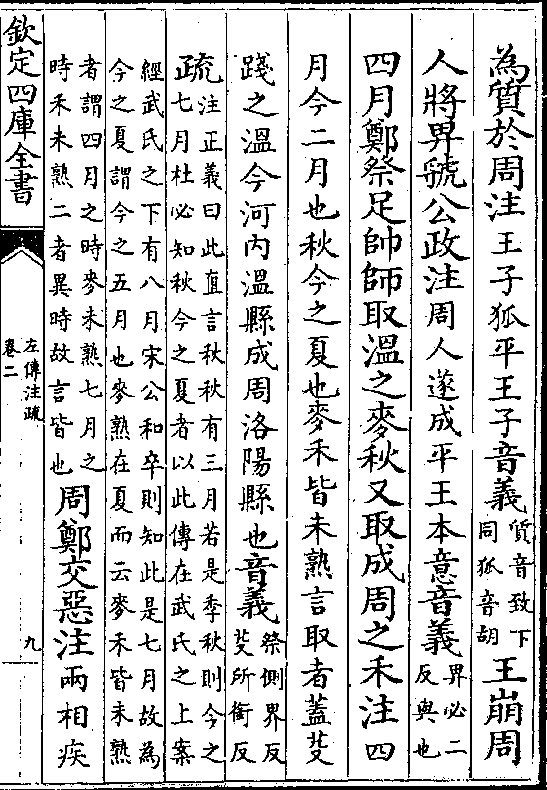 為質於周注王子狐平王子音義質音致下同狐音胡王崩周
人將畀虢公政注周人遂成平王本意音義畀必二反與也
四月鄭祭足帥師取溫之麥秋又取成周之禾注四
月今二月也秋今之夏也麥禾皆未熟言取者蓋芟
踐之溫今河內溫縣成周洛陽縣也音義祭側界反芟所銜反
疏注正義曰此直言秋秋有三月若是季秋則今之
七月杜必知秋今之夏者以此傳在武氏之上案
經武氏之下有八月宋公和卒則知此是七月故為
今之夏謂今之五月也麥熟在夏而云麥禾皆未熟
者謂四月之時麥未熟七月之
時禾未熟二者異時故言皆也周鄭交惡注兩相疾
欽定四庫全書
左傳注疏
卷二
九